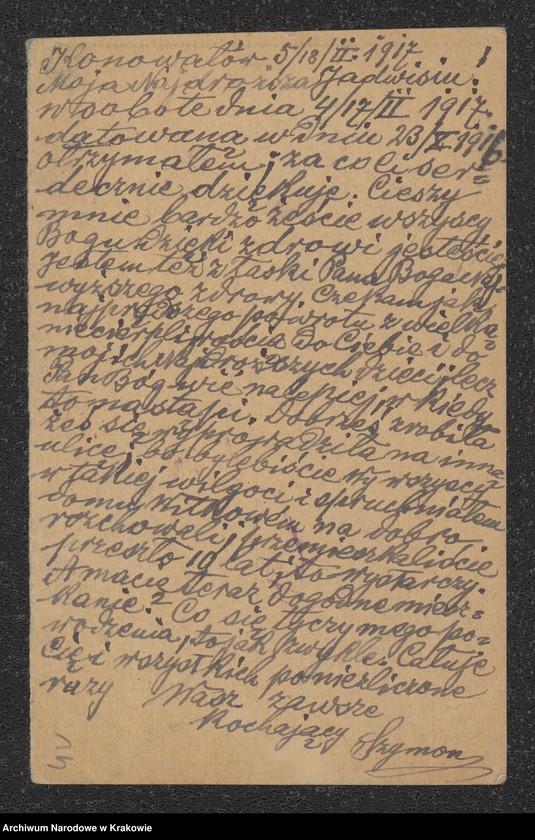 Konowałów 5/18/II. 1917
Moja Najdroższa Jadwisiu!
w sobotę dnia 4/17/II 1917.
datowaną w dniu 23/X 1916
otrzymałem, za co Ci ser=
decznie dziękuję. Cieszy
mnie bardzo żeście wszyscy
Bogu Dzięki zdrowi jesteście
Jestem też z łaski Pana Boga Naj=
wyższego zdrowy. Czekam jak
najprędszego powrotu z wielką
niecierpliwością do Ciebie i do
moich Najdroższych dzieci, lecz
Pan Bóg wie najlepiej, kiedy
to nastąpi. Dobrześ zrobiła
żeś się wyprowadziła na inną
ulicę, bo bylebiście wy wszyscy
w takiej wilgoci i spruchniałem
domu na dobro
rozchowali, przemieszkaliście
przeszło 10 lat, to wystarczy.
A macie teraz dogodne miesz=
kanie? Co się tyczy mego po=
wodzenia, to jak zwykle. Całuję
Cię i wszystkich poniezliczone
razy Wasz zawsze
Kochający
Szymon